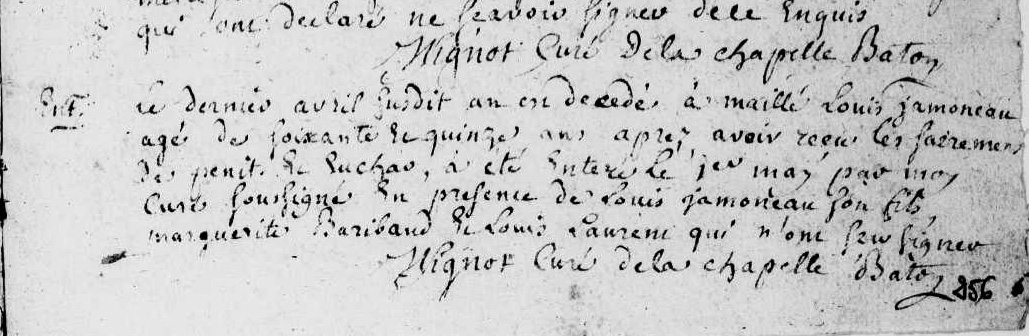 qui ont declaré ne scavoir signer de ce Enquis
Mignot Curé De la chapelle Baton
Ent.
Le dernier avril susdit an est decedé à maillé Louis jamoneau
agé de soixante et quinze ans aprez avoir recu les sacremens
De penit. Et Euchar, a eté Enteré Le jer may par moy
Curé soussigné En presence de Louis jamoneau son fils,
marguerite Baribaud et Louis Laurent qui n'ont sceu signer
Mignot Curé de la chapelle Baton
856